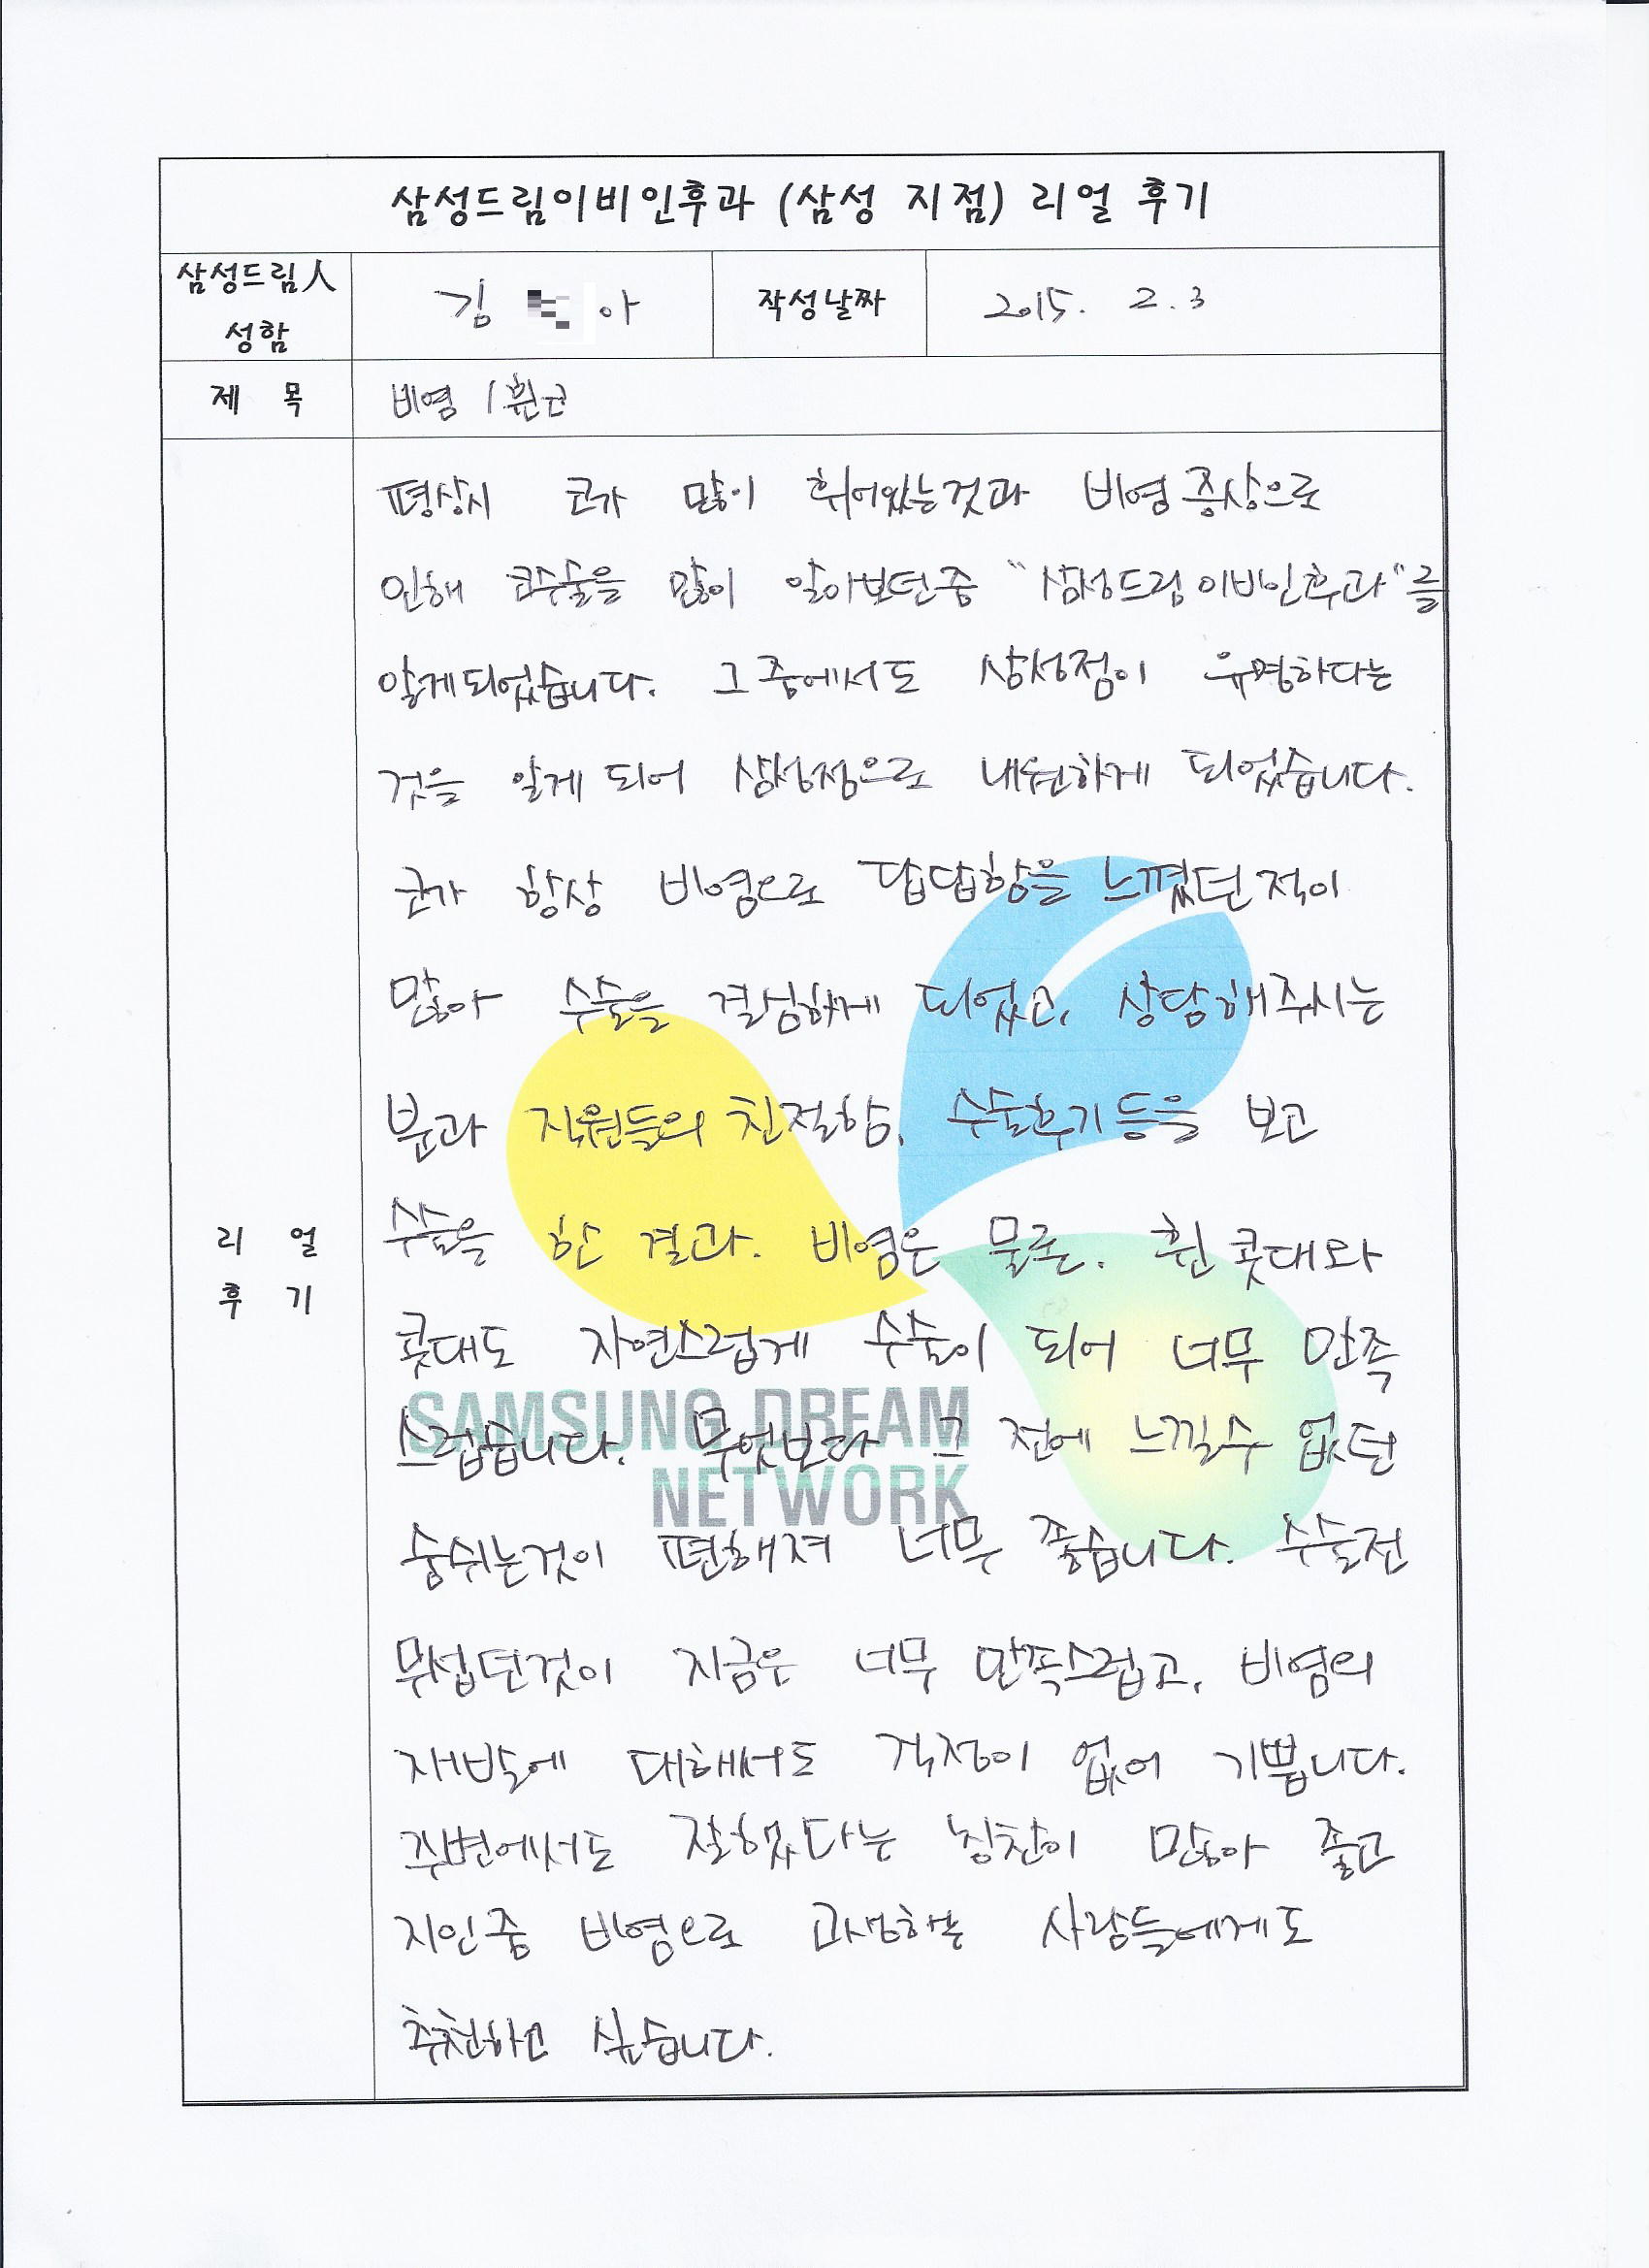 삼성드림이비인후과 (삼성 지점) 리얼 후기
삼성드림人 성함
김 아
작성날짜
2015. 2. 3
제 목
비염 / 휜코
리 얼
후 기
평상시 코가 많이 휘어있는것과 비염증상으로
인해 코수술을 많이 알아보던중 "삼성드림이비인후과"를
알게되었습니다. 그중에서도 삼성점이 유명하다는
것을 알게 되어 삼성점으로 내원하게 되었습니다.
코가 항상 비염으로 답답함을 느꼈던적이
많아 수술을 결심하게 되었고, 상담해주시는
분과 직원들의 친절함, 수술후기등을 보고
수술을 한 결과. 비염은 물론. 휜 콧대와
콧대도 자연스럽게 수술이 되어 너무 만족
스럽습니다. 무엇보다 그 전에 느낄수 없던
숨쉬는것이 편해져 너무 좋습니다. 수술전
무섭던것이 지금은 너무 만족스럽고, 비염의
재발에 대해서도 걱정이 없어 기쁩니다.
주변에서도 잘했다는 칭찬이 많아 좋고
지인중 비염으로 고생하는 사람들에게도
추천하고 싶습니다.
SAMSUNG DREAM
NETWORK